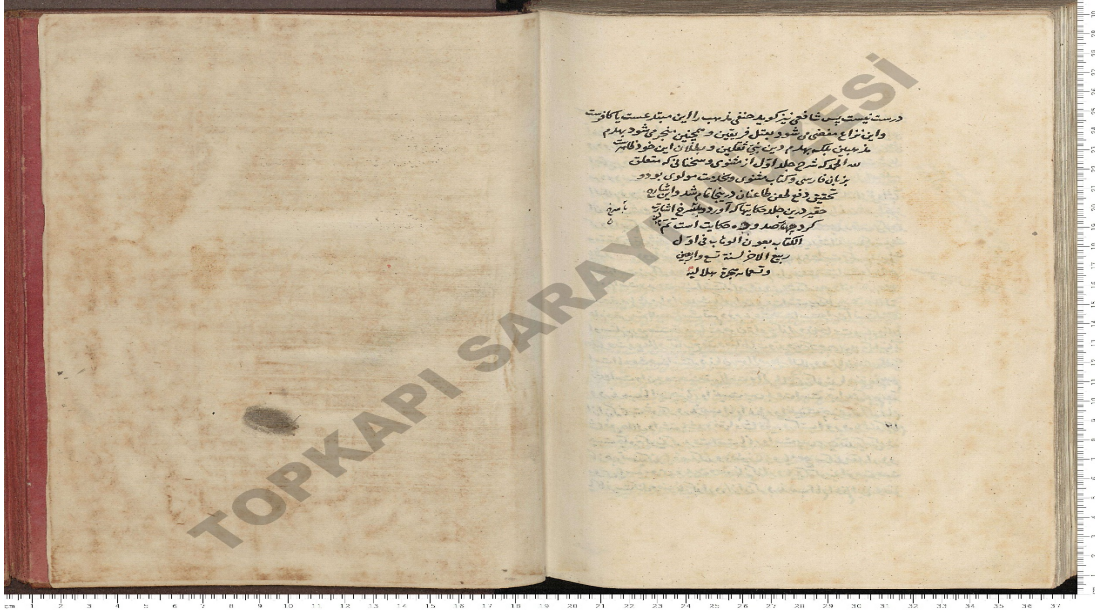 درست نیست پس شافعی نیز کوید حنفی مذهب را این مبتدعست یا کافرست
واین نزاع مفضی می شود بقتل فریقین و همچنین منجر می شود بهدم
مذهبین بلکه بهدم دین نبی ثقلین و بطلان این خود ظاهرست
لله الحمد که شرح جلد اول از مثنوی و سخنانی که متعلق
بزبان فارسی و کتاب مثنوی و بخدمت مولوی بود و
تحقیق دفع طعن طاعنان درینجا تمام شد و این
حقیر درین جلد حکایتها که آورد
کرد صد و حکایت است تم
الکتاب بعون الوهاب فی اول
ربیع الاخر لسنة تسع واربعین
وتسعمایه هجرة هلالیه
TOPKAPI SARAYI MÜZESİ